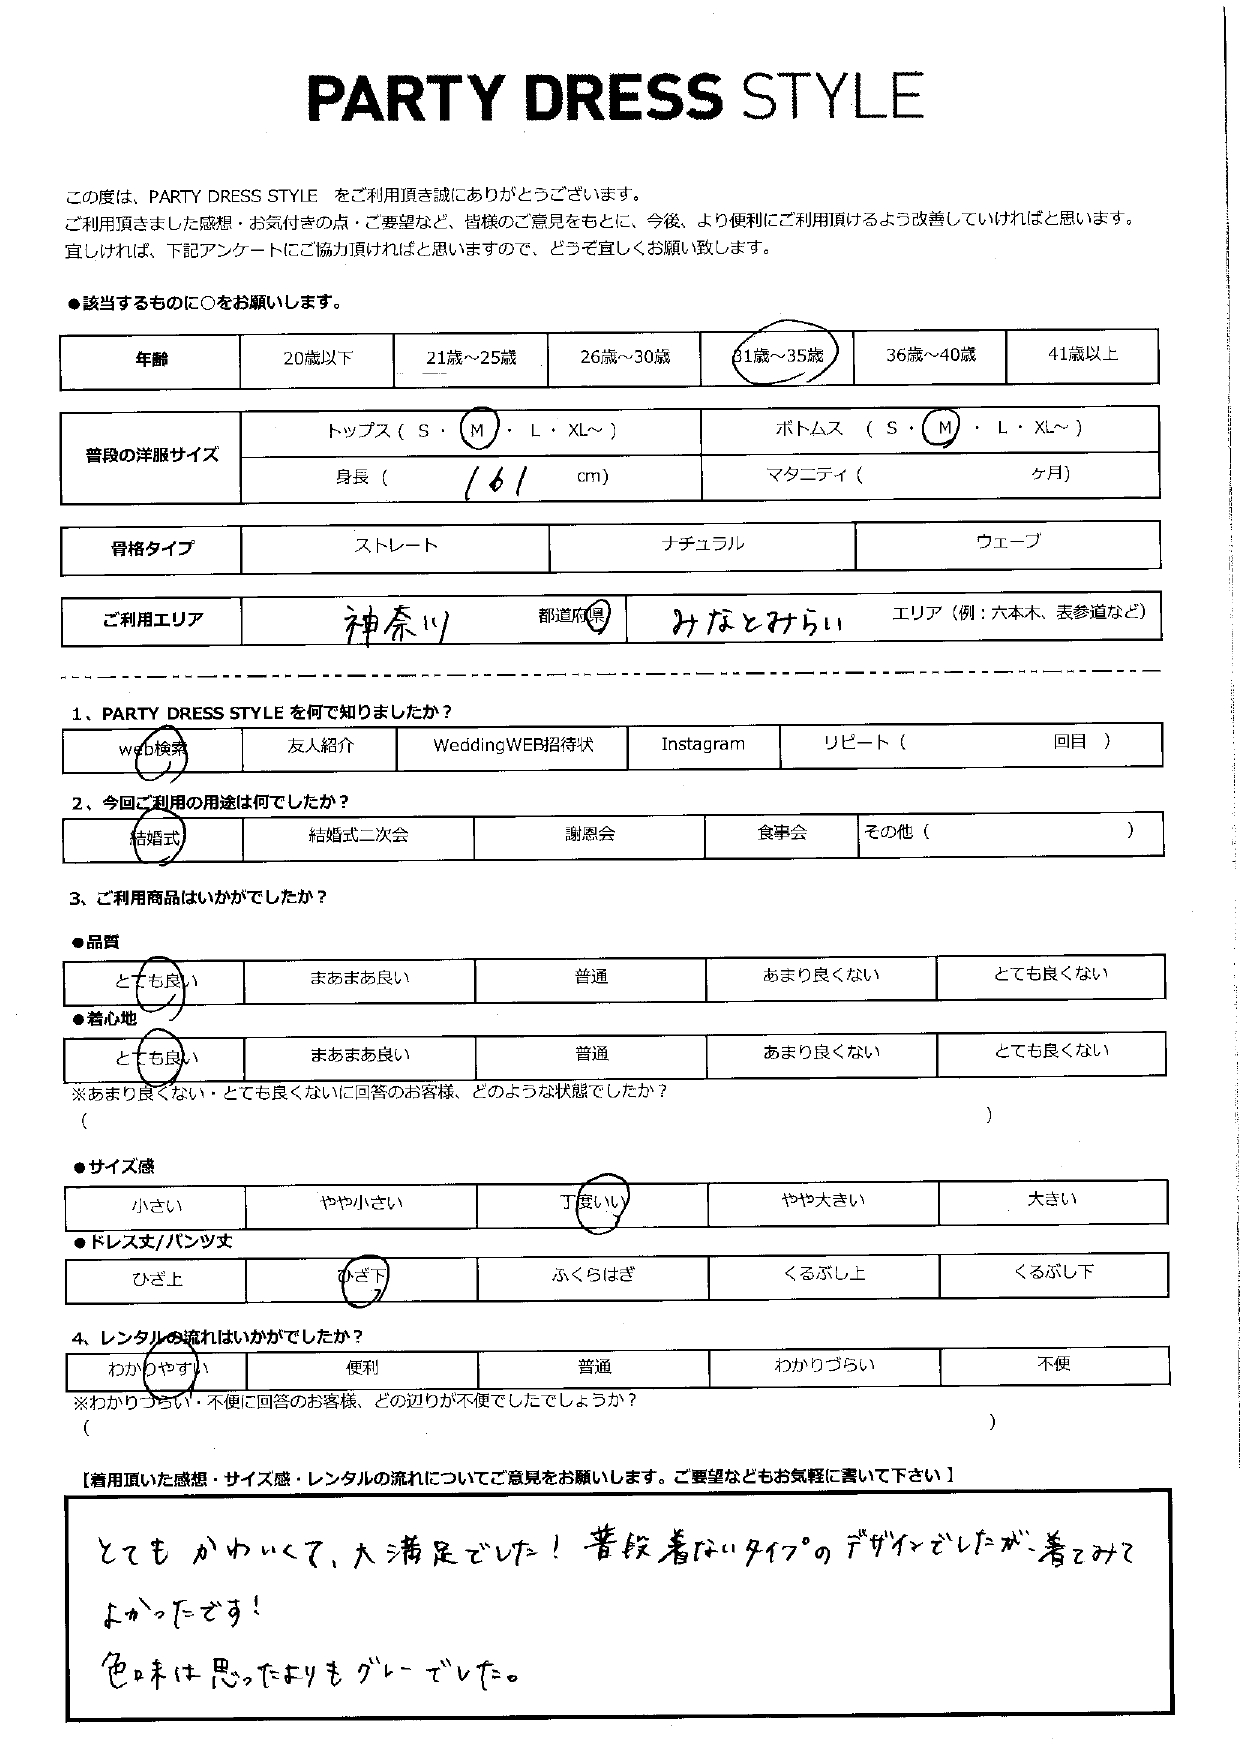 PARTY DRESS STYLE
この度は、PARTY DRESS STYLE をご利用頂き誠にありがとうございます。
ご利用頂きました感想・お気付きの点・ご要望など、皆様のご意見をもとに、今後、より便利にご利用頂けるよう改善していければと思います。
宜しければ、下記アンケートにご協力頂ければと思いますので、どうぞ宜しくお願い致します。
●該当するものに○をお願いします。
年齢 20歳以下 21歳～25歳 26歳～30歳 31歳～35歳 36歳～40歳 41歳以上
普段の洋服サイズ トップス ( S ・ M ・ L ・ XL～ ) ボトムス ( S ・ M ・ L ・ XL～ )
身長 ( 161 cm) マタニティ ( ヶ月)
骨格タイプ ストレート ナチュラル ウェーブ
ご利用エリア 神奈川 都道府県 みなとみらい エリア（例：六本木、表参道など）
1、PARTY DRESS STYLE を何で知りましたか？
web検索 友人紹介 WeddingWEB招待状 Instagram リピート ( 回目 )
2、今回ご利用の用途は何でしたか？
結婚式 結婚式二次会 謝恩会 食事会 その他 ( )
3、ご利用商品はいかがでしたか？
●品質
とても良い まあまあ良い 普通 あまり良くない とても良くない
●着心地
とても良い まあまあ良い 普通 あまり良くない とても良くない
※あまり良くない・とても良くないに回答のお客様、どのような状態でしたか？
( )
●サイズ感
小さい やや小さい 丁度いい やや大きい 大きい
●ドレス丈/パンツ丈
ひざ上 ひざ下 ふくらはぎ くるぶし上 くるぶし下
4、レンタルの流れはいかがでしたか？
わかりやすい 便利 普通 わかりづらい 不便
※わかりづらい・不便に回答のお客様、どの辺りが不便でしたでしょうか？
( )
【着用頂いた感想・サイズ感・レンタルの流れについてご意見をお願いします。ご要望などもお気軽に書いて下さい】
とても かわいくて、大満足でした！普段着ないタイプのデザインでしたが、着てみて
よかったです！
色味は思ったよりもグレーでした。